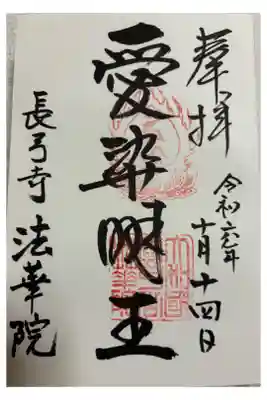 奉拝
令和元年
十月十四日
愛染明王
長弓寺 法華院